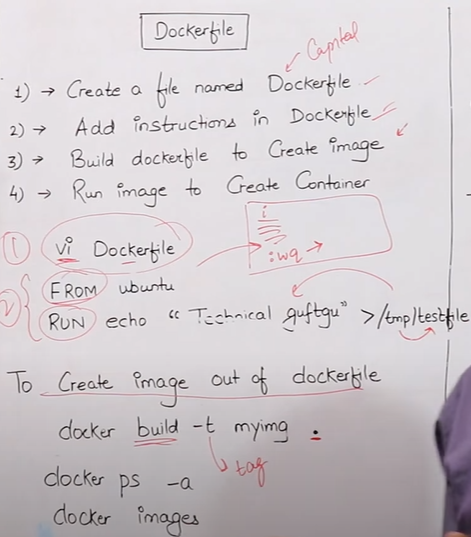 Dockerfile
Capital
1) → Create a file named Dockerfile
2) → Add instructions in Dockerfile
3) → Build dockerfile to Create image
4) → Run image to Create Container
i
:wq →
1 vi Dockerfile
2 FROM ubuntu
RUN echo “Technical guftgu” >/tmp/testfile
To Create image out of dockerfile
docker build -t myimg .
tag
docker ps -a
docker images